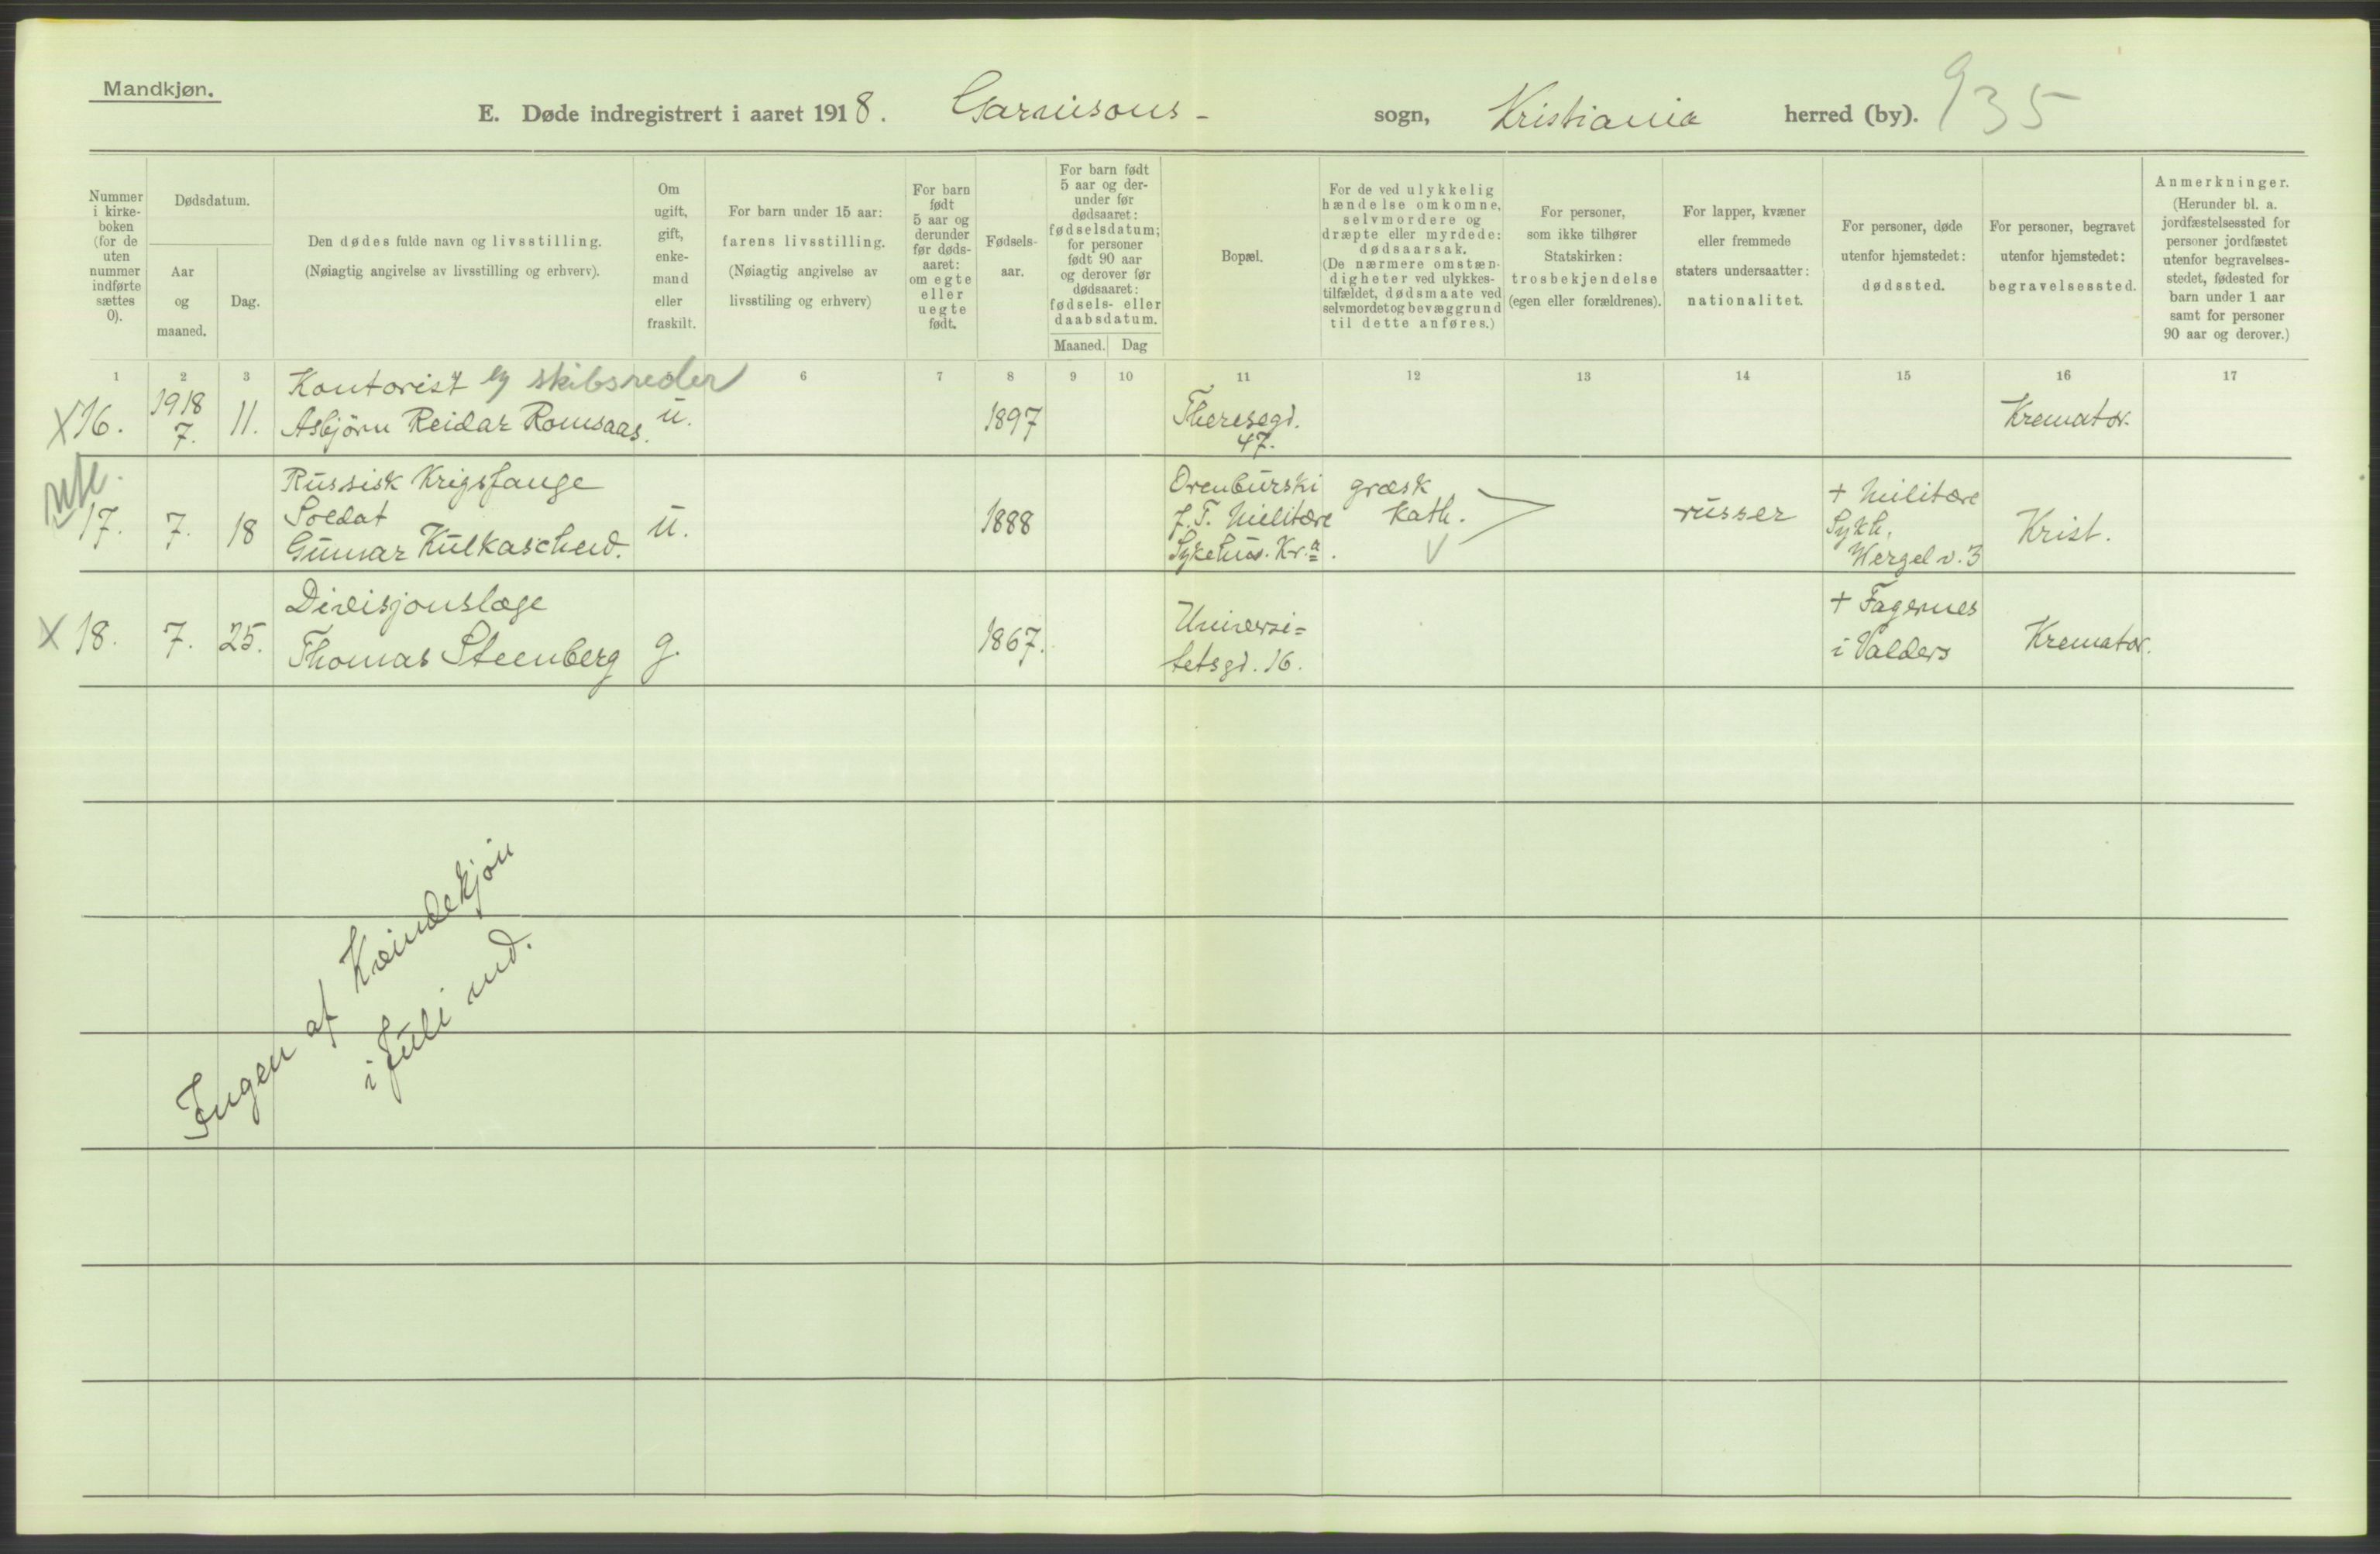 Mandkjøn.
E. Døde indregistrert i aaret 1918. Garnisons- sogn, Kristiania herred (by). 935
Nummer i kirke-boken (for de uten nummer indførte sættes 0).
Dødsdatum.
Aar og maaned.
Dag.
Den dødes fulde navn og livsstilling.
(Nøiagtig angivelse av livsstilling og erhverv).
Om ugift, gift, enke-mand eller fraskilt.
For barn under 15 aar:
farens livsstilling.
(Nøiagtig angivelse av
livsstiling og erhverv)
For barn født 5 aar og derunder før døds-aaret: om egte eller uegte født.
Fødsels-aar.
For barn født 5 aar og der-under før dødsaaret: fødselsdatum; for personer født 90 aar og derover før dødsaaret: fødsels- eller daabsdatum.
Maaned. Dag
Bopæl.
For de ved ulykkelig
hændelse omkomne,
selvmordere og
dræpte eller myrdede:
dødsaarsak.
(De nærmere omstæn-
digheter ved ulykkes-
tilfældet, dødsmaate ved
selvmordet og bevæggrund
til dette anføres.)
For personer,
som ikke tilhører
Statskirken:
trosbekjendelse
(egen eller forældrenes).
For lapper, kvæner
eller fremmede
staters undersaatter:
nationalitet.
For personer, døde
utenfor hjemstedet:
dødssted.
For personer, begravet
utenfor hjemstedet:
begravelsessted.
Anmerkninger.
(Herunder bl. a.
jordfæstelsessted for
personer jordfæstet
utenfor begravelses-
stedet, fødested for
barn under 1 aar
samt for personer
90 aar og derover.)
1 2 3 6 7 8 9 10 11 12 13 14 15 16 17
X 16. 1918 7. 11. Kontorist skibsreder
Asbjörn Reidar Romsaas. u. 1897 Theresegd. 47. Kremator.
17. 7. 18 Russisk Krigsfange
Soldat
Gunnar Kulkascheid. u. 1888 Orenburski
f. T. Militære
Sykehus. Kr.a. græsk
Kath. V russer + Militære
Sykh.
Wergel v. 3 Krist.
X 18. 7. 25. Divisjonslæge
Thomas Steenberg g. 1867. Universi=
tetsgd. 16. + Fagernes
i Valders Kremator.
Ingen af Kvindekjön
i Juli md.